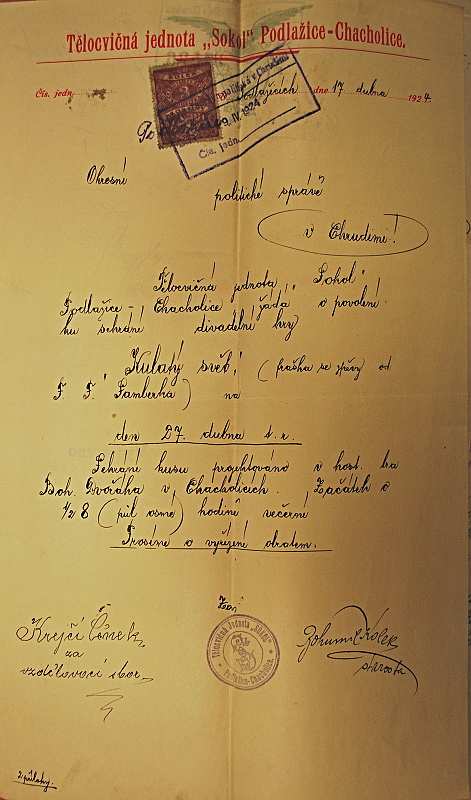 Tělocvičná jednota „Sokol" Podlažice-Chacholice.
Čís. jedn.
dne 17 dubna 1924.
Čís. jedn.
Okresní
politické správě
v Chrudimi!
Tělocvičná jednota „Sokol"
Podlažice - Chacholice žádá o povolení
ku sehrání divadelní hry
„Kulatý svět" (fraška se zpěvy) od
F. F. Šamberka) na
den 27. dubna t. r.
Sehrání kusu projektováno v host. pa
Boh. Dvořáka v Chacholicích. Začátek o
1/2 8 (půl osmé) hodině večerní
Prosíme o vyřízení obratem.
Za:
Krejčí Čeněk
za
vzdělávací sbor
Tělocvičná Jednota „SOKOL"
Podlažice-Chacholice
Bohumil Kolek
starosta
2 přílohy.